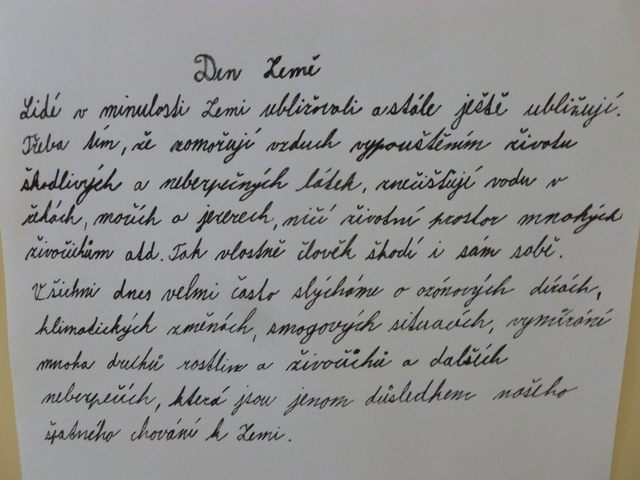 Den Země
Lidé v minulosti Zemi ubližovali a stále ještě ubližují.
Třeba tím, že zamořují vzduch vypouštěním životu
škodlivých a nebezpečných látek, znečišťují vodu v
řekách, mořích a jezerech, ničí životní prostor mnohých
živočichům atd. Tak vlastně člověk škodí i sám sobě.
Všichni dnes velmi často slýcháme o ozónových dírách,
klimatických změnách, smogových situacích, vymírání
mnoha druhů rostlin a živočichů a dalších
nebezpečích, která jsou jenom důsledkem našeho
špatného chování k Zemi.